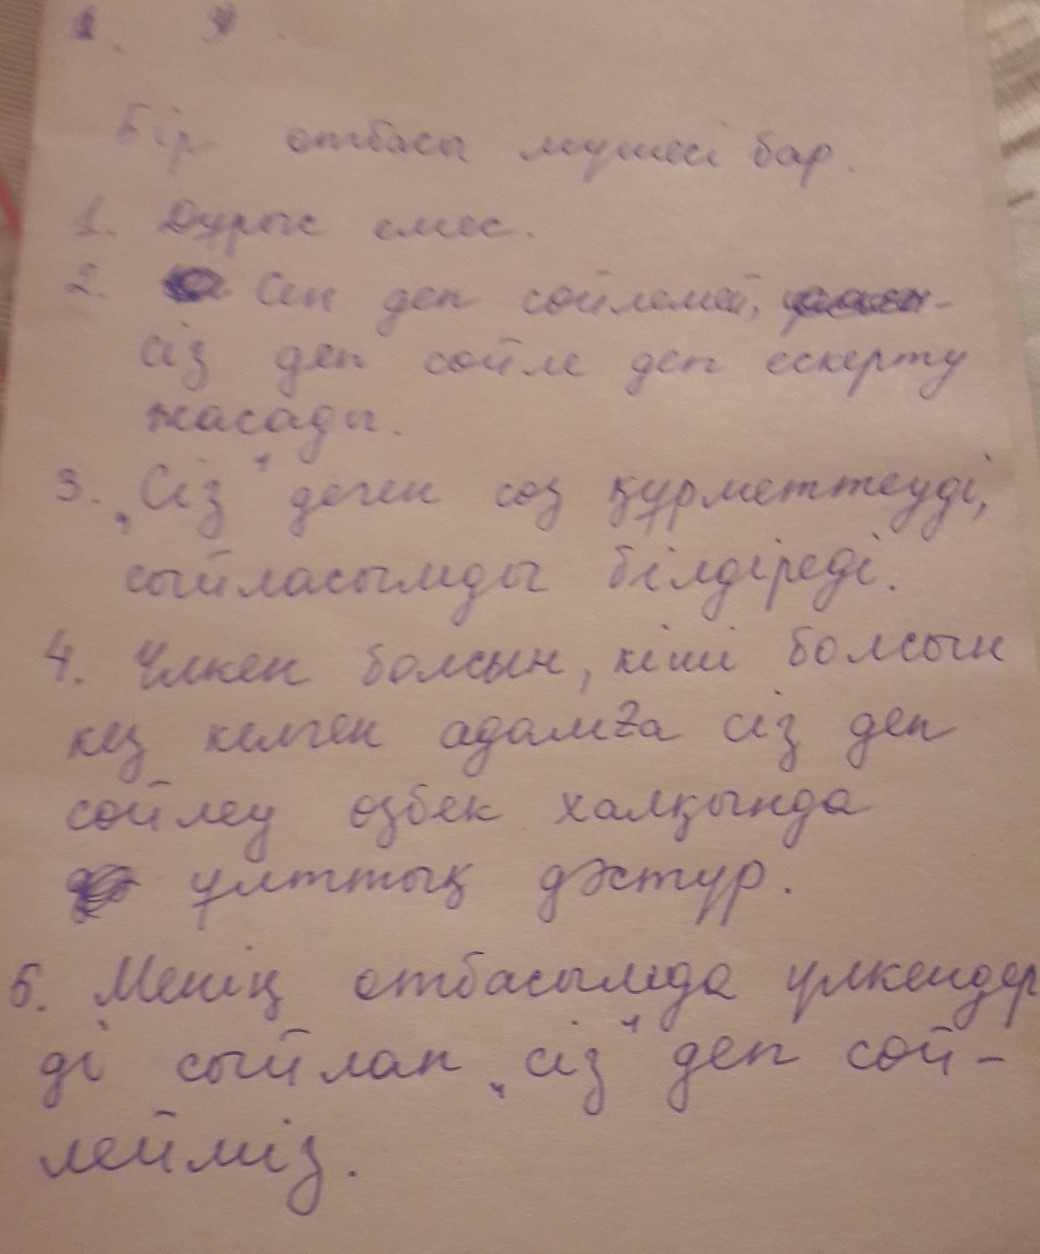 Бір отбасы мүшесі бар.
1. Дұрыс емес.
2. Сен деп сөйлемей,
сіз деп сөйле деп ескерту
жасады.
3. „Сіз" деген сөз құрметтеуді,
сыйласымды білдіреді.
4. Үлкен болсын, кіші болсын
кез келген адамға сіз деп
сөйлеу өзбек халқында
ұлттық дәстүр.
5. Менің отбасымда үлкендер
ді сыйлап „сіз" деп сөй-
лейміз.